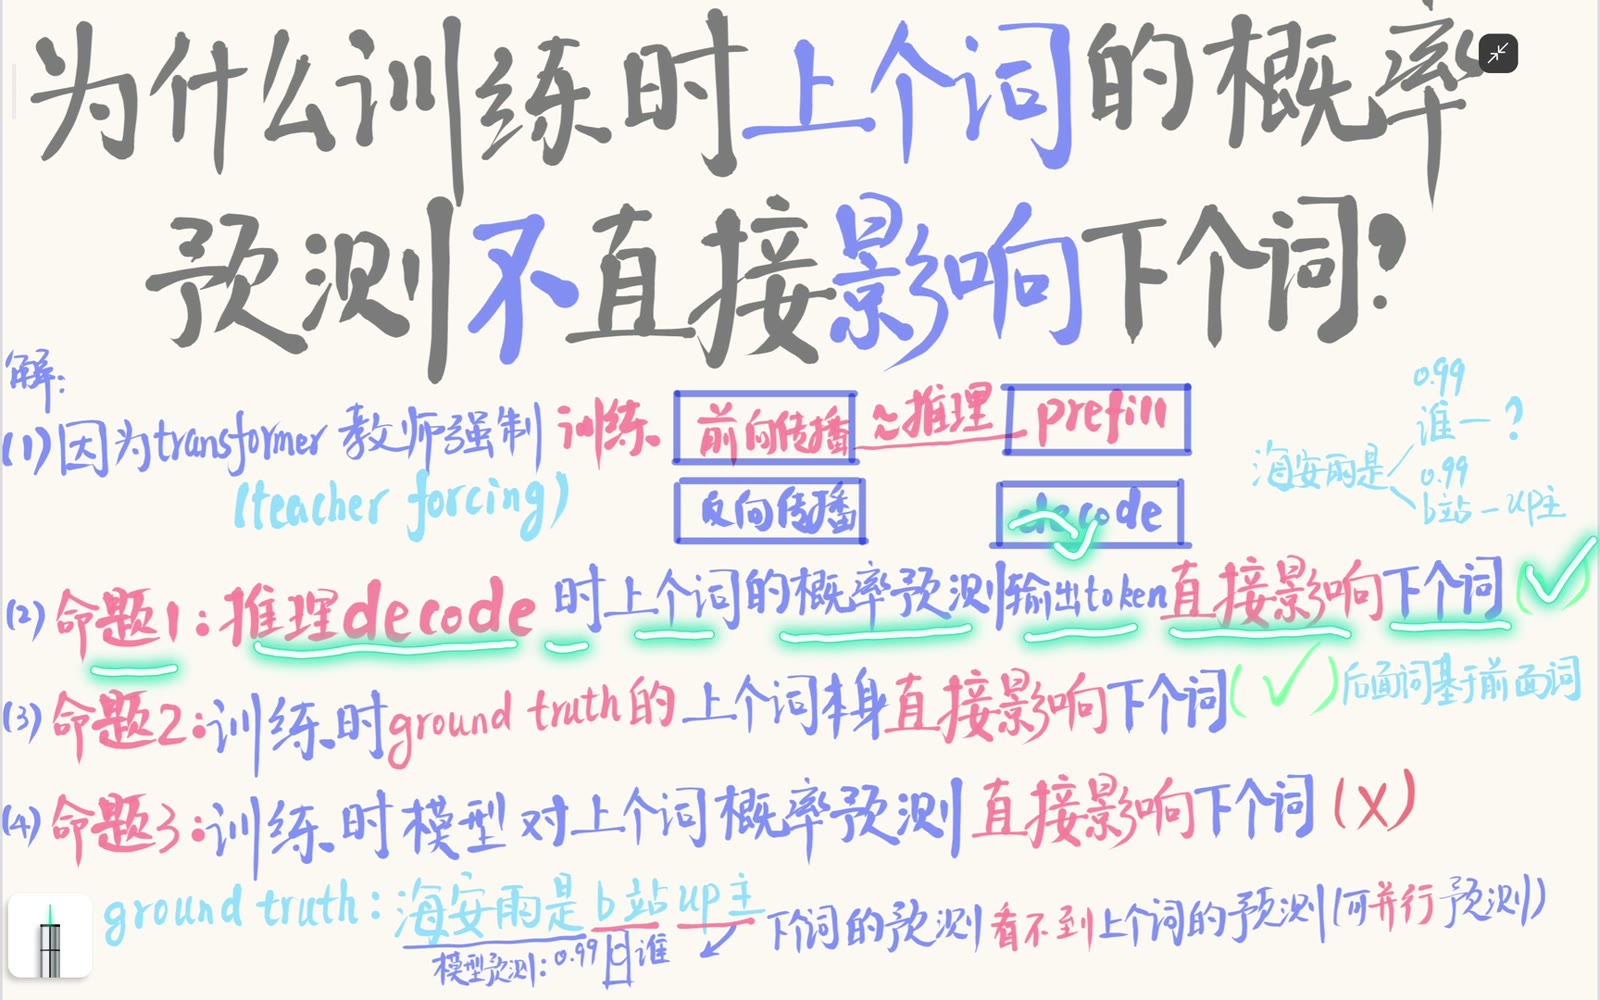 为什么训练时上个词的概率
预测不直接影响下个词?
解:
(1)因为transformer教师强制 训练 前向传播≈推理 prefill
(teacher forcing) 反向传播 decode
海安雨是
0.99
谁—?
0.99
b站—up主
(2)命题1:推理decode时上个词的概率预测输出token直接影响下个词(✓)
(3)命题2:训练时ground truth的上个词本身直接影响下个词(✓)后面词基于前面词
(4)命题3:训练时模型对上个词概率预测直接影响下个词(×)
ground truth:海安雨是b站up主 下个词的预测看不到上个词的预测(可并行预测)
模型预测:0.99 谁